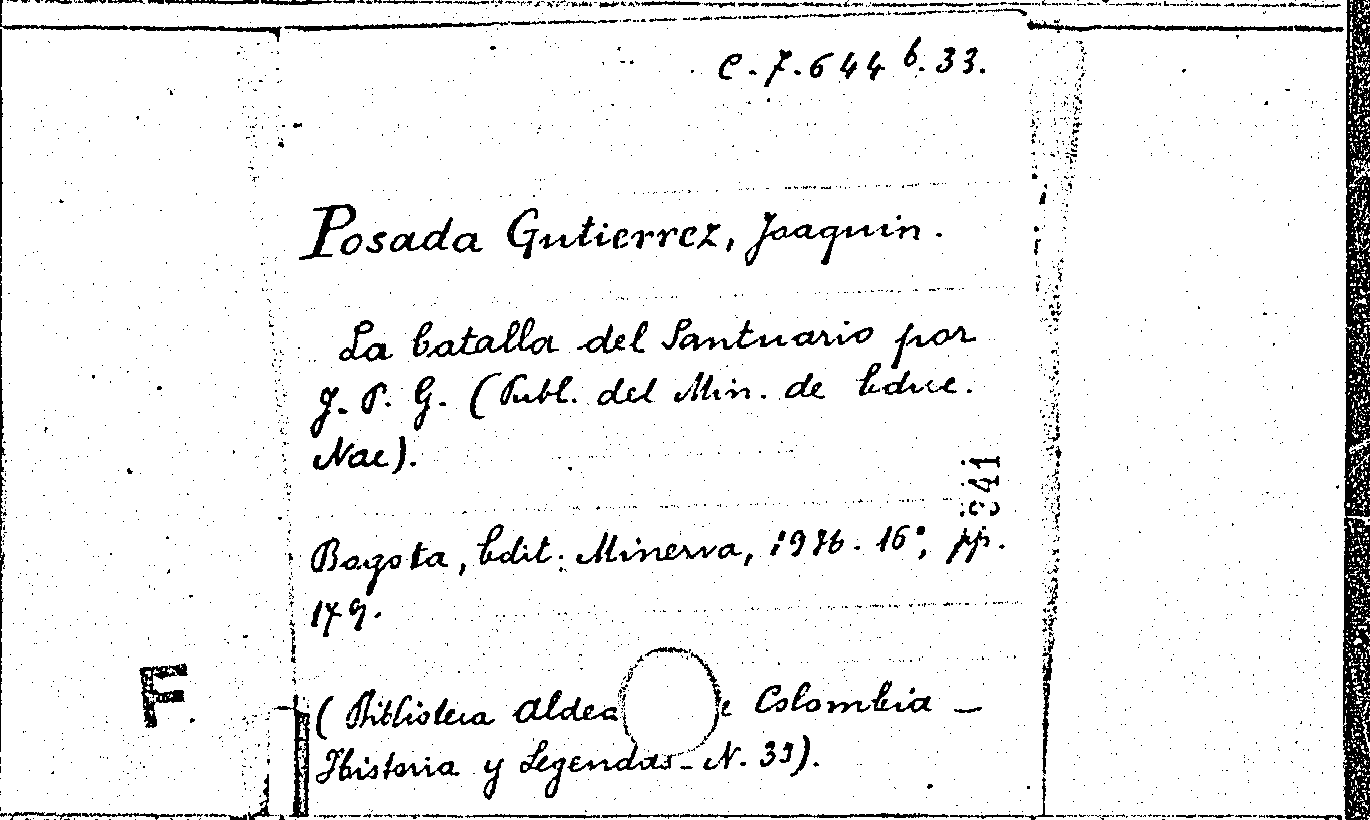 C.7.644 b.33.
Posada Gutierrez, Joaquin.
La batalla del Santuario por
J. P. G. (Publ. del Min. de Educ.
Nac).
Bogota, Edit. Minerva, 1936. 16°, pp.
179.
(Biblioteca Aldea Colombia –
Historia y Legendas – N. 33).
F